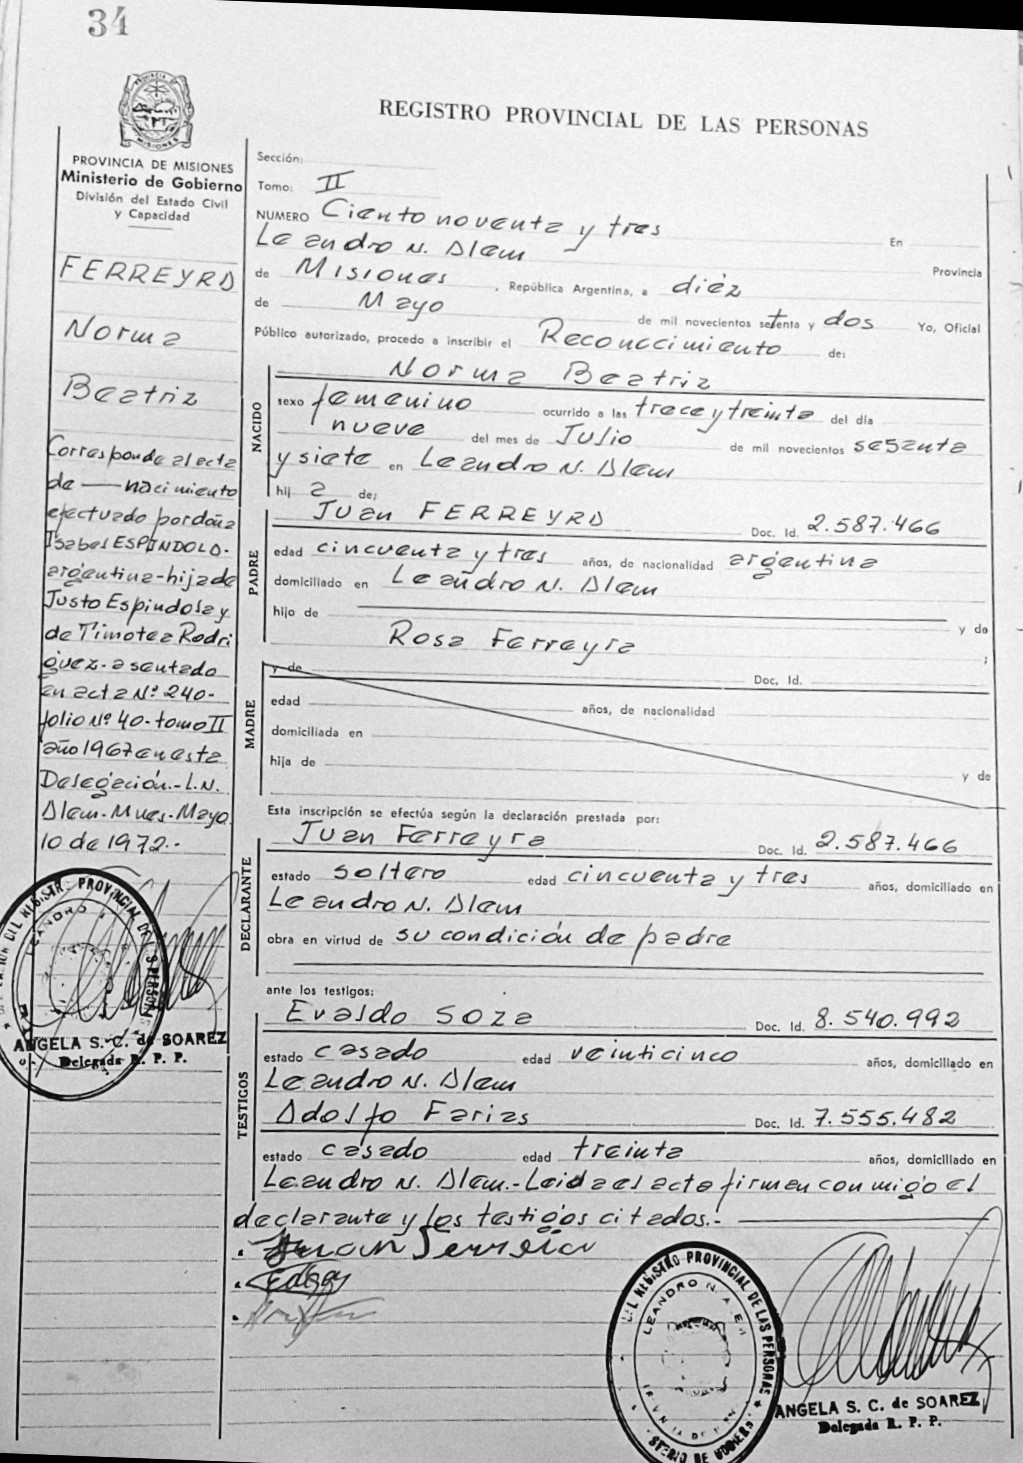 34
PROVINCIA DE MISIONES
Ministerio de Gobierno
División del Estado Civil
y Capacidad
FERREYRA
Norma
Beatriz
Corresponde al acta
de — nacimiento
efectuado por doña
Isabel ESPINDOLA-
argentina-hija de
Justo Espindola y
de Timotea Rodri
guez-asentado
en acta Nº 240-
folio Nº 40-tomo II
año 1967 en esta
Delegación.-L.N.
Alem-Mnes-Mayo
10 de 1972.-
ANGELA S. C. de SOAREZ
Delegada R. P. P.
REGISTRO PROVINCIAL DE LAS PERSONAS
Sección:
Tomo: II
NUMERO Ciento noventa y tres En
Leandro N. Alem Provincia
de Misiones, República Argentina, a diéz
de Mayo de mil novecientos setenta y dos Yo, Oficial
Público autorizado, procedo a inscribir el Reconocimiento de:
NACIDO
Norma Beatriz
sexo femenino ocurrido a las trece y treinta del día
nueve del mes de Julio de mil novecientos sesenta
y siete en Leandro N. Alem
hij a de:
PADRE
Juan FERREYRA Doc. Id. 2.587.466
edad cincuenta y tres años, de nacionalidad argentina
domiciliado en Leandro N. Alem
hijo de y de
Rosa Ferreyra ;
MADRE
y de Doc. Id.
edad años, de nacionalidad
domiciliada en
hija de y de
Esta inscripción se efectúa según la declaración prestada por:
DECLARANTE
Juan Ferreyra Doc. Id. 2.587.466
estado soltero edad cincuenta y tres años, domiciliado en
Leandro N. Alem
obra en virtud de su condición de padre
ante los testigos:
TESTIGOS
Evaldo Soza Doc. Id. 8.540.992
estado casado edad veinticinco años, domiciliado en
Leandro N. Alem
Adolfo Farias Doc. Id. 7.555.482
estado casado edad treinta años, domiciliado en
Leandro N. Alem.-Leida el acta firman conmigo el
declarante y los testigos citados.-
Juan Ferreira
REGISTRO PROVINCIAL DE LAS PERSONAS
LEANDRO N. ALEM
ANGELA S. C. de SOAREZ
Delegada R. P. P.